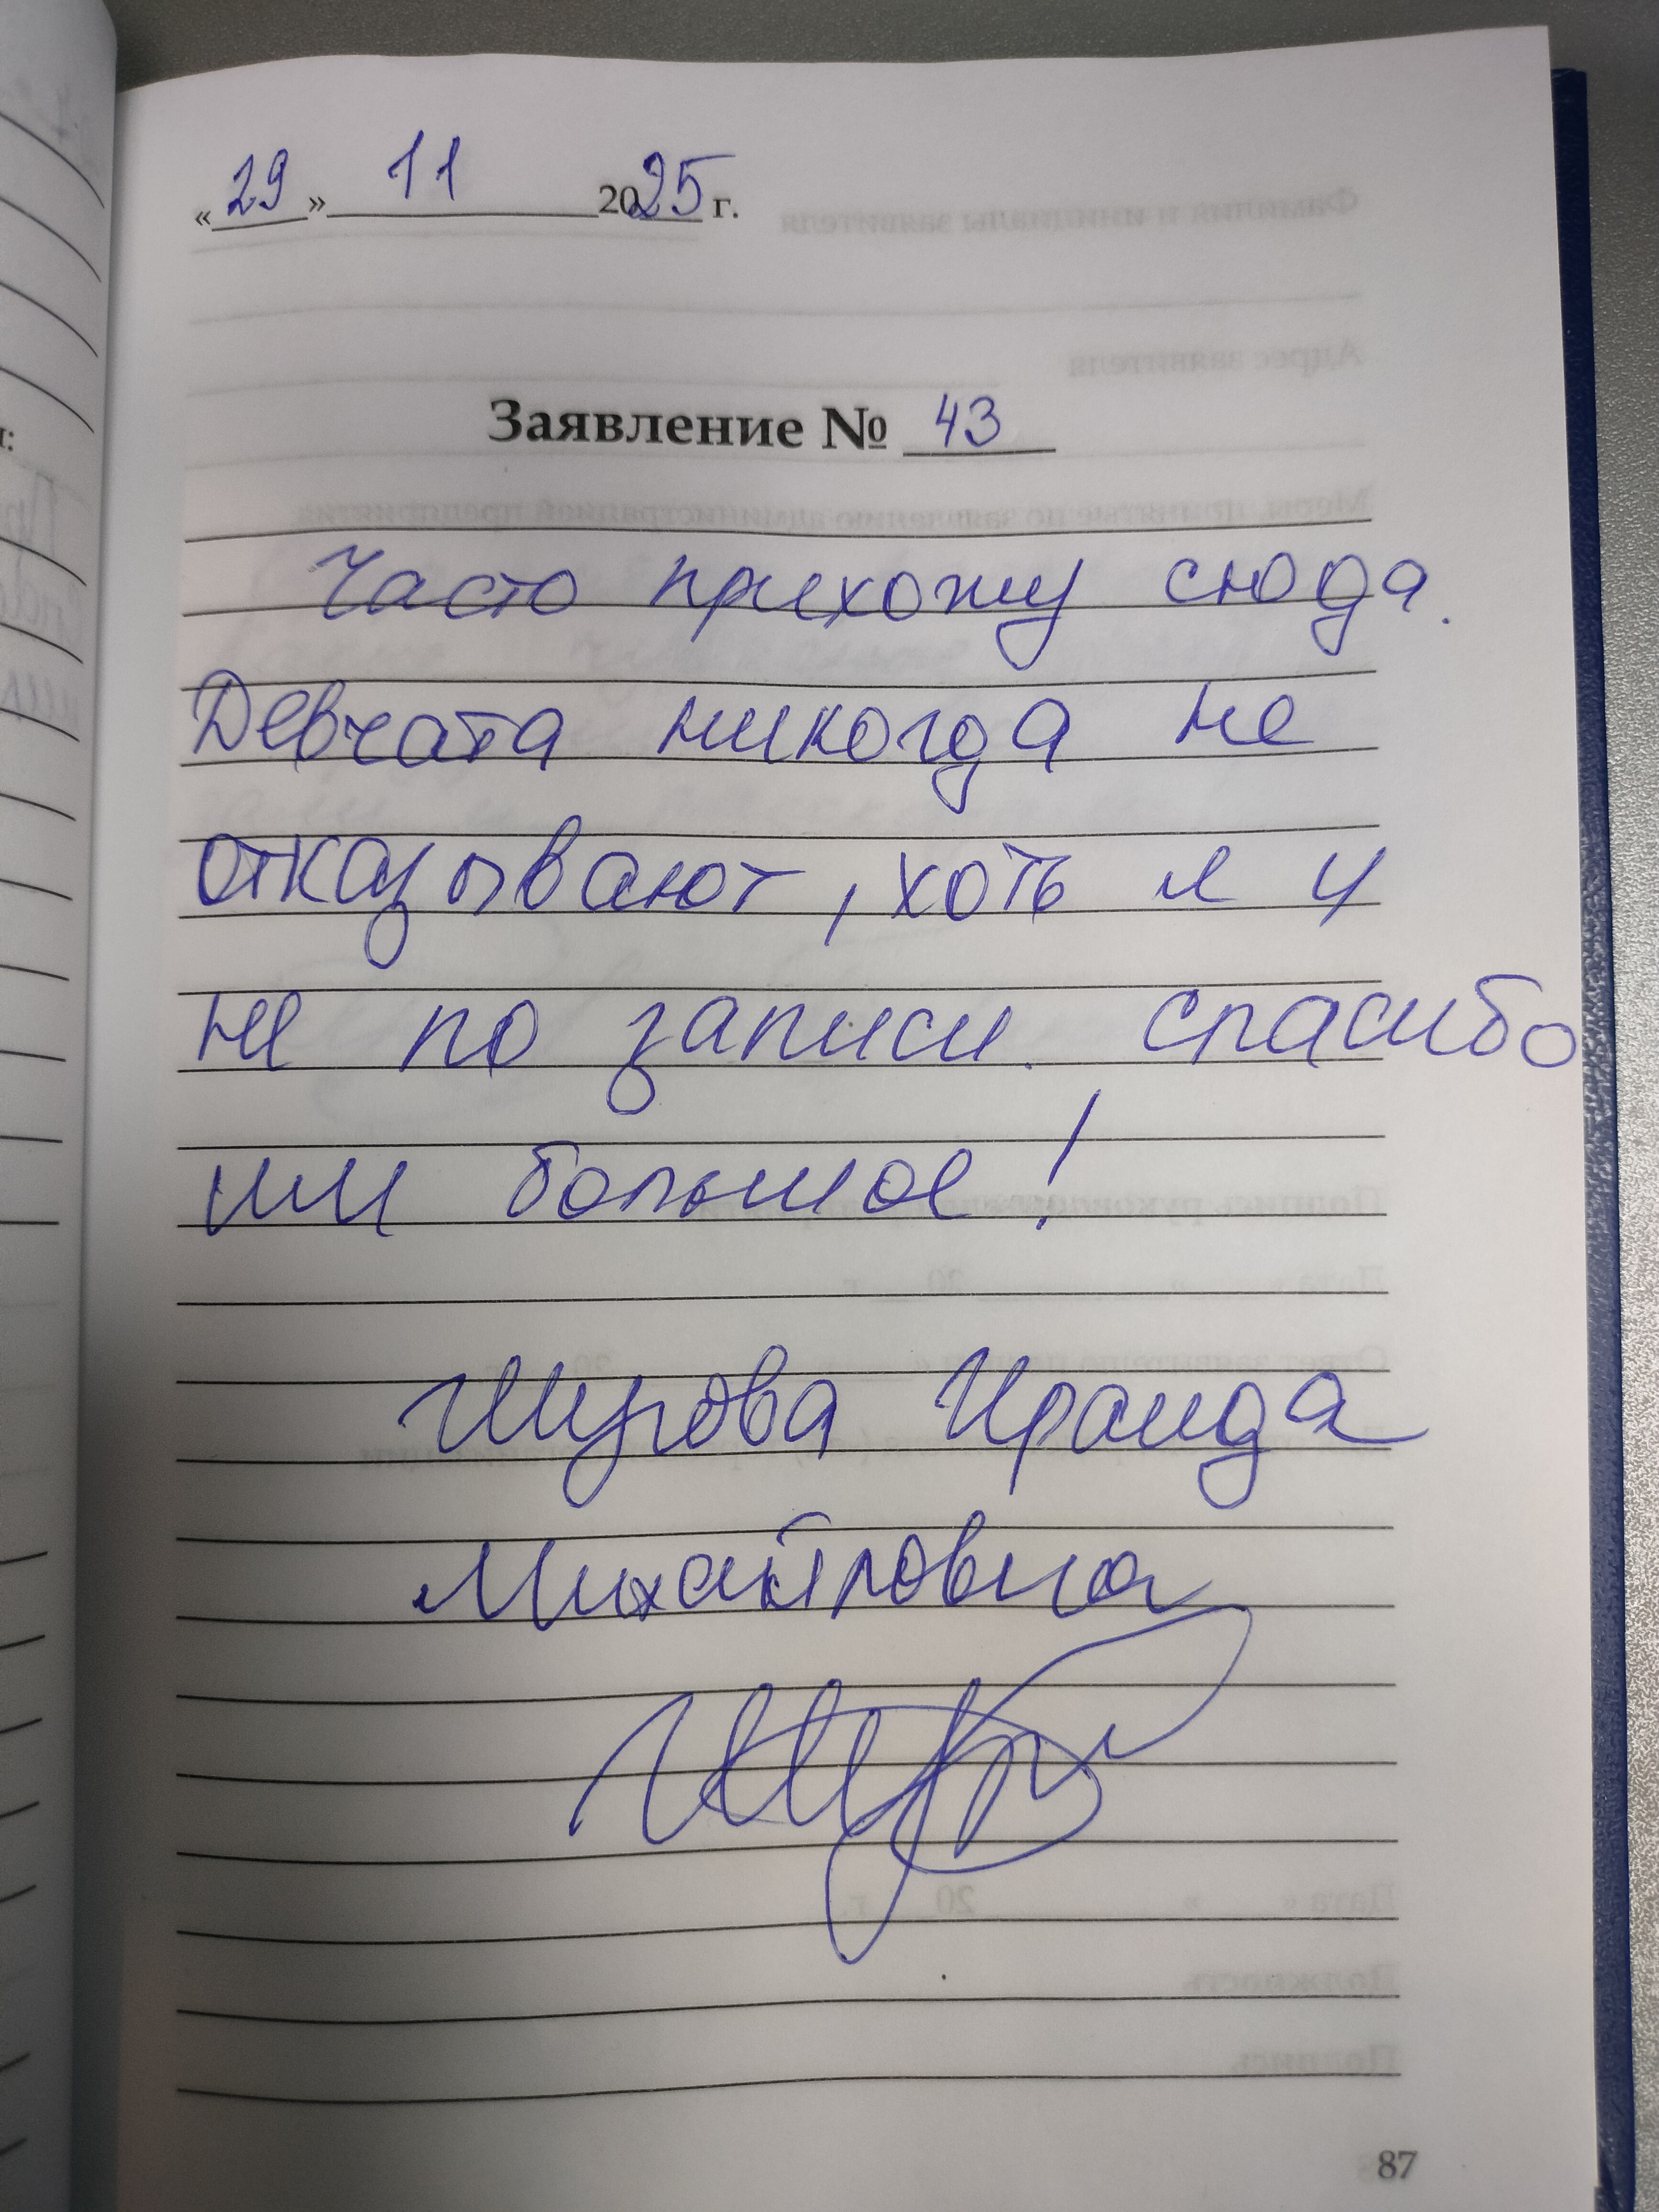 «29» 11 2025 г.
Заявление № 43
Часто прихожу сюда.
Девчата никогда не
отказывают, хоть я и
не по записи. спасибо
им большое!
Ираида
Михайловна
87